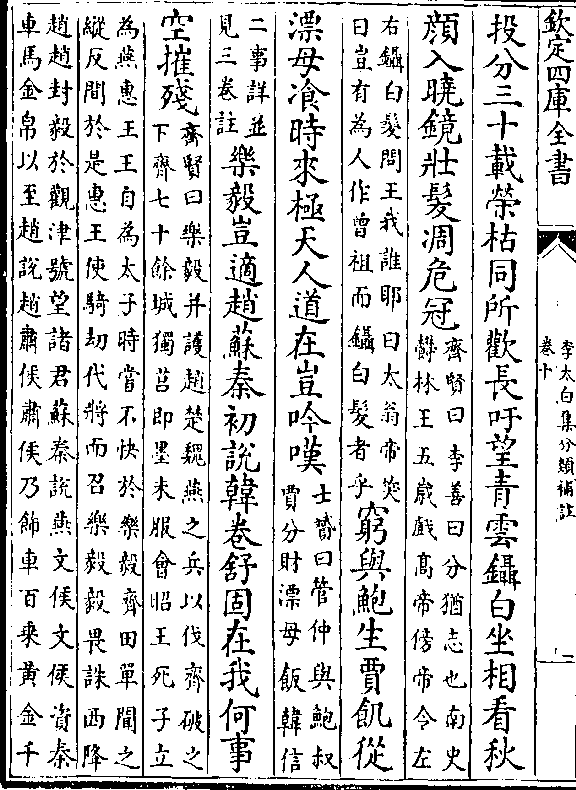 欽定四庫全書
李太白集分類補註
卷十
投分三十載榮枯同所歡長吁望青雲鑷白坐相看秋
顔入曉鏡壯髮凋危冠
齊賢曰李善曰分猶志也南史
欎林王五嵗戯髙帝傍帝令左
右鑷白髮問王我誰耶曰太翁帝笑
曰豈有為人作曾祖而鑷白髮者乎
窮與鮑生賈飢從
漂母飡時來極天人道在豈吟嘆
士贇曰管仲與鮑叔
賈分財漂母飯韓信
二事詳並
見三卷註
樂毅豈適趙蘇秦初說韓卷舒固在我何事
空摧殘
齊賢曰樂毅并護趙楚魏燕之兵以伐齊破之
下齊七十餘城獨莒即墨未服會昭王死子立
為燕惠王王自為太子時嘗不快於樂毅齊田單聞之
縱反間於是惠王使騎刼代將而召樂毅毅畏誅西降
趙趙封毅於觀津號望諸君蘇秦說燕文侯文侯資秦
車馬金帛以至趙說趙肅侯肅侯乃飾車百乗黄金千